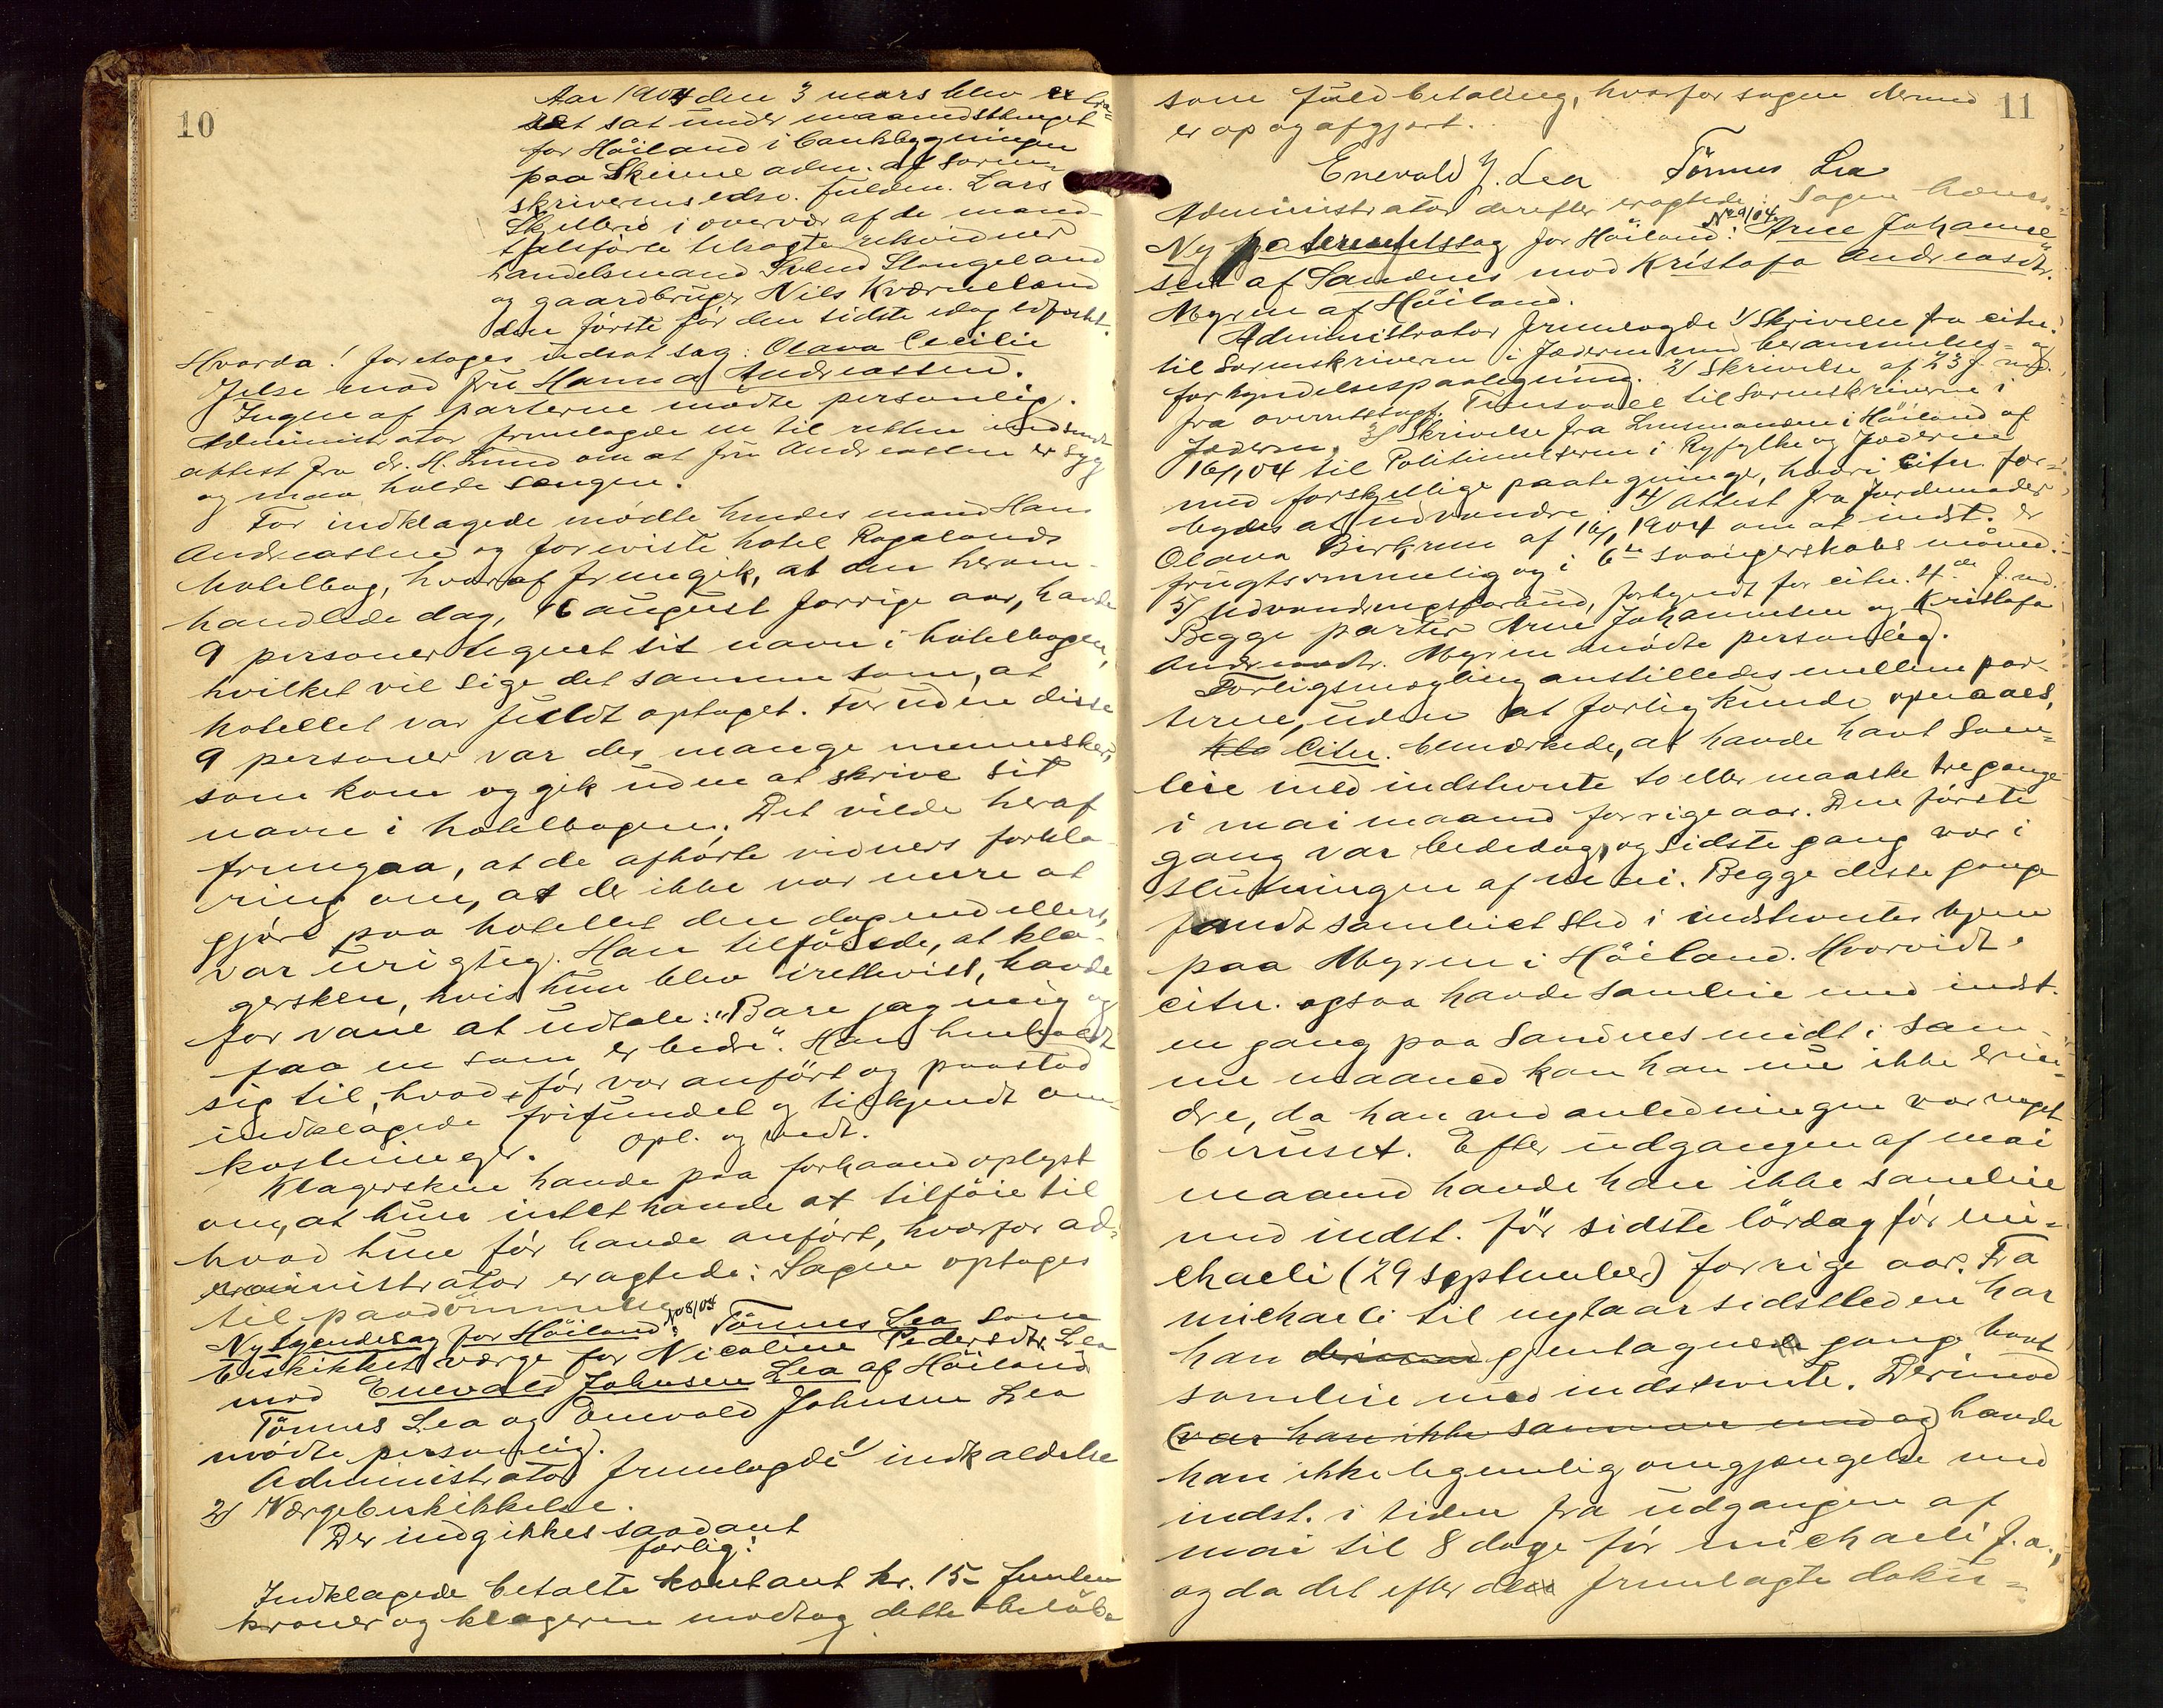 10
Aar 1904 den 3 mars blev extra-
ret sat under maanedsthinget
for Höiland i bankbygningen
paa Skeiene adm. af soren-
skriverens edsv. fuldm. Lars
Skjelbred i overvær af de mand-
talsförte tilsagte retsvidner
handelsmand Svend Stangeland
og gaardbruger Nils Kværneland
den förste för den sidste idag edfæstet.
Hvorda! foretages udsat sag: Olava Cecilie
Jelse mod fru Hanna Andreassen.
Ingen af parterne mödte personlig.
Administrator fremlagde en til retten indsendt
attest fra dr. H. Lund om at fru Andreassen er syg
og maa holde sengen.
For indklagede mödte hendes mand Hans
Andreassen og foreviste hotel Rogalands
hotelbog, hvoraf fremgik, at den herom-
handlede dag, 16 august forrige aar, havde
9 personer tegnet sit navn i hotelbogen,
hvilket vil sige det samme som, at
hotellet var fuldt optaget. Foruden disse
9 personer var der mange mennesker,
som kom og gik uden at skrive sit
navn i hotelbogen. Det vilde heraf
fremgaa, at de afhörte vidners forkla-
ring om, at der ikke var mere at
gjöre paa hotellet den dag end ellers,
var urigtig. Han tilföiede, at kla-
gersken, hvis hun blev irettevist, havde
for vane at udtale: "Bare jag mig og
faa en som er bedre". Han henholdt
sig til, hvad för var anfört og paastod
indklagede frifundet og tilkjendt om-
kostninger. Opl. og vedt.
Klagersken havde paa forhaand oplyst
om, at hun intet havde at tilföie til
hvad hun för havde anfört, hvorfor ad-
ministrator eragtede: Sagen optages
til paadömmelse.
Ny tyendesag for Höiland: No 8/04 Tönnes Lea som
beskikket værge for Nicoline Pedersdtr. Lea
mod Enevald Johnsen Lea af Höiland
Tönnes Lea og Enevald Johnsen Lea
mödte personlig.
Administrator fremlagde 1/ indkaldelse
2/ Værgebeskikkelse.
Der indgikkes saadant
forlig:
Indklagede betalte kontant kr. 15 - femten
kroner og klageren modtog dette belöb
11
som fuld betaling, hvorfor sagen dermed
er op og afgjort.
Enevald J. Lea Tönnes Lea
Administrator derefter eragtede: Sagen hæves.
Ny paternitetssag for Höiland: No 9/04 Arne Johanne-
sen af Sandnes mod Kristofa Andreasdtr.
Myren af Höiland.
Administrator fremlagde 1/ Skrivelse fra citn.
til Sorenskriveren i Jæderen med berammelses- og
forkyndelsespaategning. 2/ Skrivelse af 23 f. md.
fra overretssagf. Tunsvold til Sorenskriveren i
Jæderen. 3/ Skrivelse fra Lensmanden i Höiland af
16/1 04 til Politimesteren i Ryfylke og Jæderen
med forskjellige paategninger, hvori citn. for-
bydes at udvandre. 4/ Attest fra Jordemoder
Olava Birkrem af 16/1 1904 om at indst. er
frugtsommelig og i 6te svangerskabs måned.
5/ Udvandringsforbud, forkyndt for citn. 4de f. md.
Begge parter Arne Johannesen og Kristofa
Andreasdtr. Myren mödte personlig.
Forligsmegling anstilledes mellem par-
terne, uden at forlig kunde opnaaes,
Kla Citn. bemærkede, at havde havt sam-
leie med indstevnte to eller maaske tre gange
i mai maaned forrige aar. Den förste
gang var bededag, og sidste gang var i
slutningen af mai. Begge disse gange
fandt samleiet sted i indstevntes hjem
paa Myren i Höiland. Hvorvidt
citn. ogsaa havde samleie med indst.
en gang paa Sandnes midt i sam-
me maaned kan han nu ikke erin-
dre, da han ved anledningen var meget
beruset. Efter udgangen af mai
maaned havde han ikke samleie
med indst. för sidste lördag för mi-
chaeli (29 september) forrige aar. Fra
michaeli til nytaar sidstleden har
han gjentagne gange havt
samleie med indstevnte. Derimod
(var han ikke sammen med og) havde
han ikke legemlig omgjængelse med
indst. i tiden fra udgangen af
mai til 8 dage för michaeli f. a.,
og da det efter den fremlagte doku-